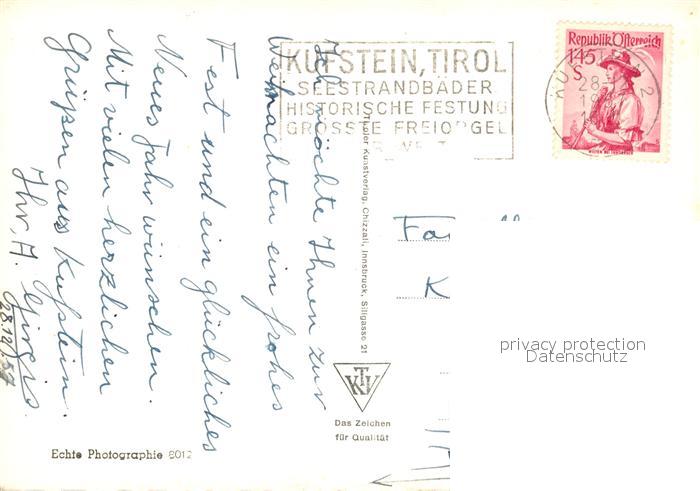 Ich möchte Ihnen zur
Weihnachten ein frohes
Fest und ein glückliches
Neues Jahr wünschen.
Mit vielen herzlichen
Grüßen aus Kufstein.
Ihr, A.
28.12.
KUFSTEIN, TIROL
SEESTRANDBÄDER
HISTORISCHE FESTUNG
GRÖSSTE FREIORGEL
Republik Österreich
1·45
S
KUFSTEIN 2
Tiroler Kunstverlag, Chizzali, Innsbruck, Sillgasse 21
TKV
Das Zeichen
für Qualität
Echte Photographie 8012
privacy protection
Datenschutz